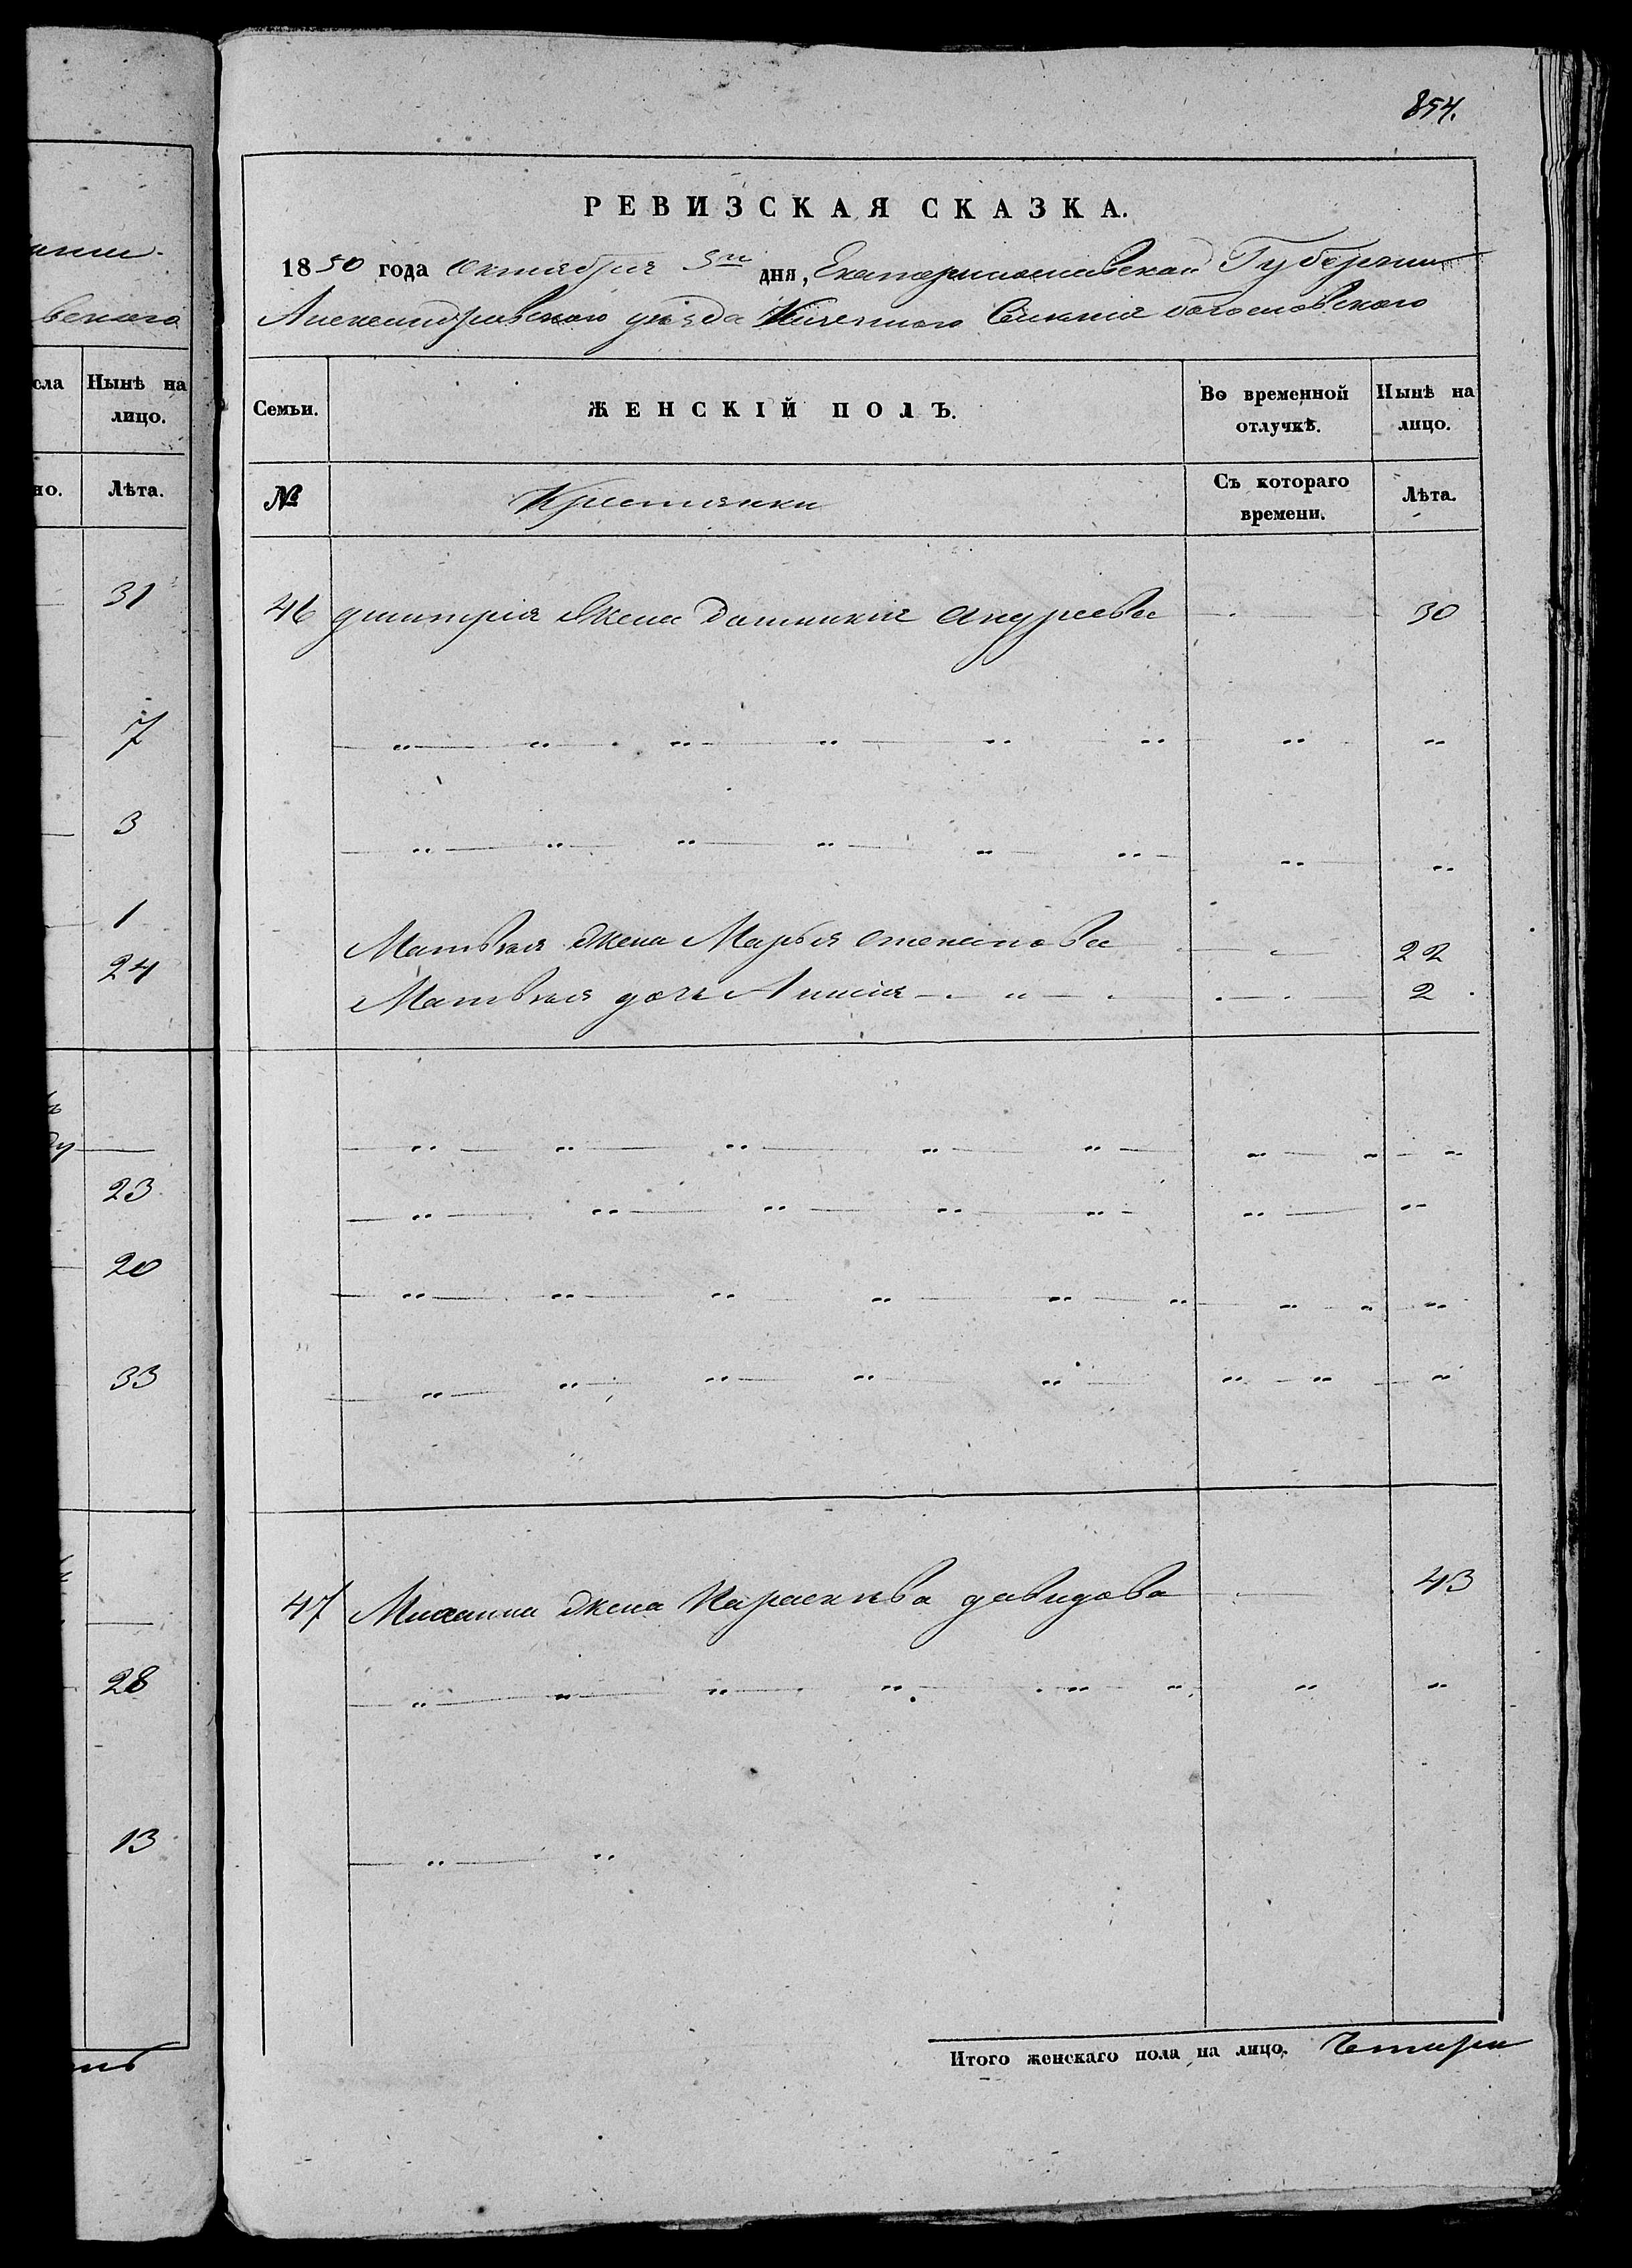 854.
РЕВИЗСКАЯ СКАЗКА.
1850 года Октября 5го дня, Екатеринославской Губернии
Александровского уезда Селения богословского
вского
сла
Нынѣ на лицо.
но.
Лѣта.
31
7
3
1
24
ду
23
20
33
28
13
Семьи.
ЖЕНСКІЙ ПОЛЪ.
Во временной отлучкѣ.
Нынѣ на лицо.
№
Крестянки
Съ котораго времени.
Лѣта.
46 дмитрія Жена Домникія Андреева 30
Матвѣя Жена Марья степанова 22
Матвѣя дочь 2
47 Михаила Жена Параскѣва давидова 43
Итого женскаго пола на лицо. Четыри